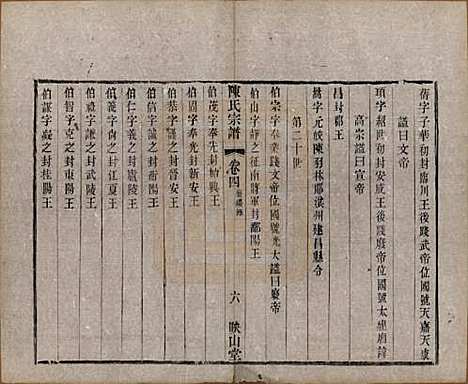 蒨字子華初封臨川王後踐武帝位國號天嘉天康
謚曰文帝
頊字紹世初封安成王後踐廢帝位國號太建廟謚
高宗謚曰宣帝
昌封鄱王
字元成陳羽林郎漢州建昌縣令
第二十世
伯宗字奉業踐文帝位國號光大謚曰廢帝
伯山字靜之征南將軍封鄱陽王
陳氏宗譜 卷四 六 映山堂
伯茂字奉先封始興王
伯固字奉先封晉安王
伯恭字謹之封晉安王
伯信字誠之封衡陽王
伯義字尚之封江夏王
伯禮字謙之封武陵王
伯智字克之封東陽王
伯謀字凝之封桂陽王